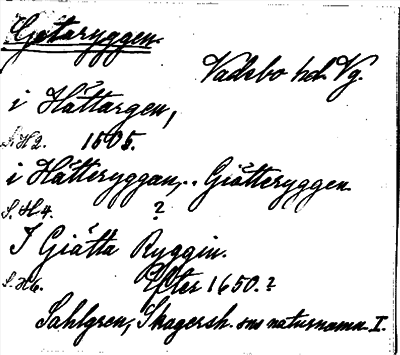 Götaryggen.
Vadsbo hd. Vg.
i Håttargen,
S. H 2. 1505.
i Hätteryggan,.. Giötteryggen
S. H 4. ?
I Giätta Ryggin.
S. H 6. Efter 1650.?
Sahlgren, Skagersh. sns naturnamn I.